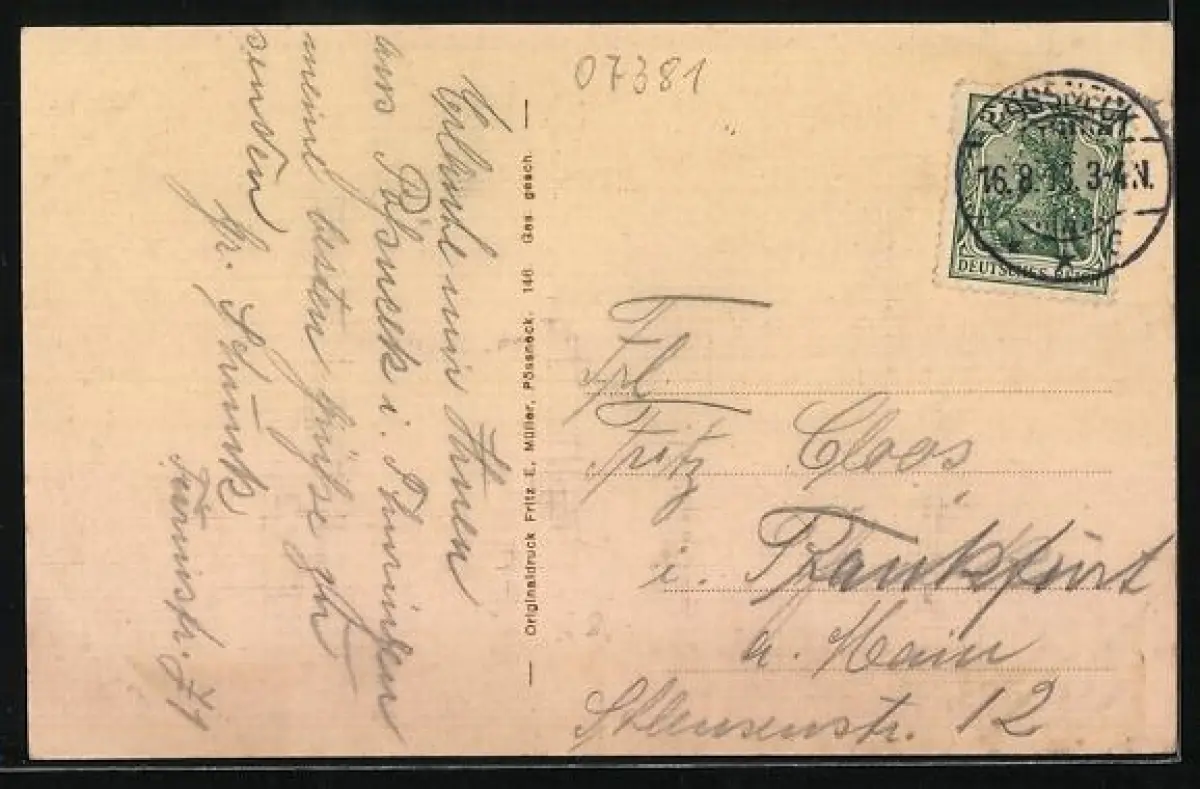 07381
PÖSSNECK
16.8.13. 3-4 N.
DEUTSCHES REICH
Erlaube mir Ihnen
aus Pößneck i. Thüringen
meine besten Grüße zu
senden
Fr. Schunk
Originaldruck Fritz E. Müller, Pössneck. 146. Ges. gesch.
Frl.
Fritz Cloos
i. Frankfurt
a. Main
12